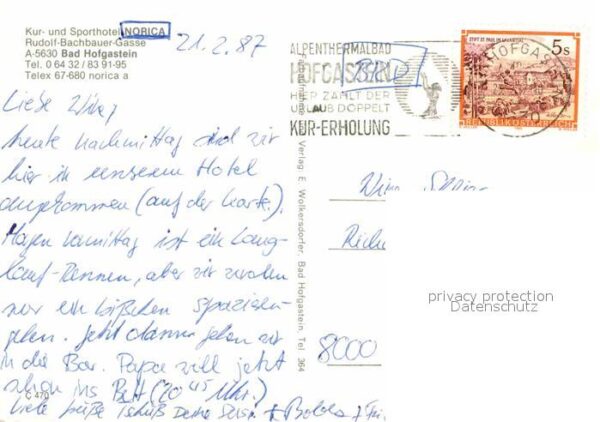 Kur- und Sporthotel NORICA
Rudolf-Bachbauer-Gasse
A-5630 Bad Hofgastein
Tel. 0 64 32 / 83 91-95
Telex 67-680 norica a
21.2.87
Liebe
heute nachmittag sind wir
hier in unserem Hotel
angekommen (auf der Karte).
Morgen vormittag ist ein Lang-
lauf-Rennen, aber wir wollen
nur ein bißchen spazieren-
gehen. Jetzt dann gehen wir
in die Bar. Papa will jetzt
schon ins Bett (20 45 Uhr.)
Liebe Grüße Tschüß Deine Susi + 
C 470
Verlag: E. Wolkersdorfer, Bad Hofgastein, Tel. 364
ALPENTHERMALBAD
HOFGASTEIN
HIER ZÄHLT DER
URLAUB DOPPELT
KUR-ERHOLUNG
STIFT ST. PAUL IM LAVANTTAL
5s
HOFGAS
REPUBLIK ÖSTERREICH
8000
privacy protection
Datenschutz